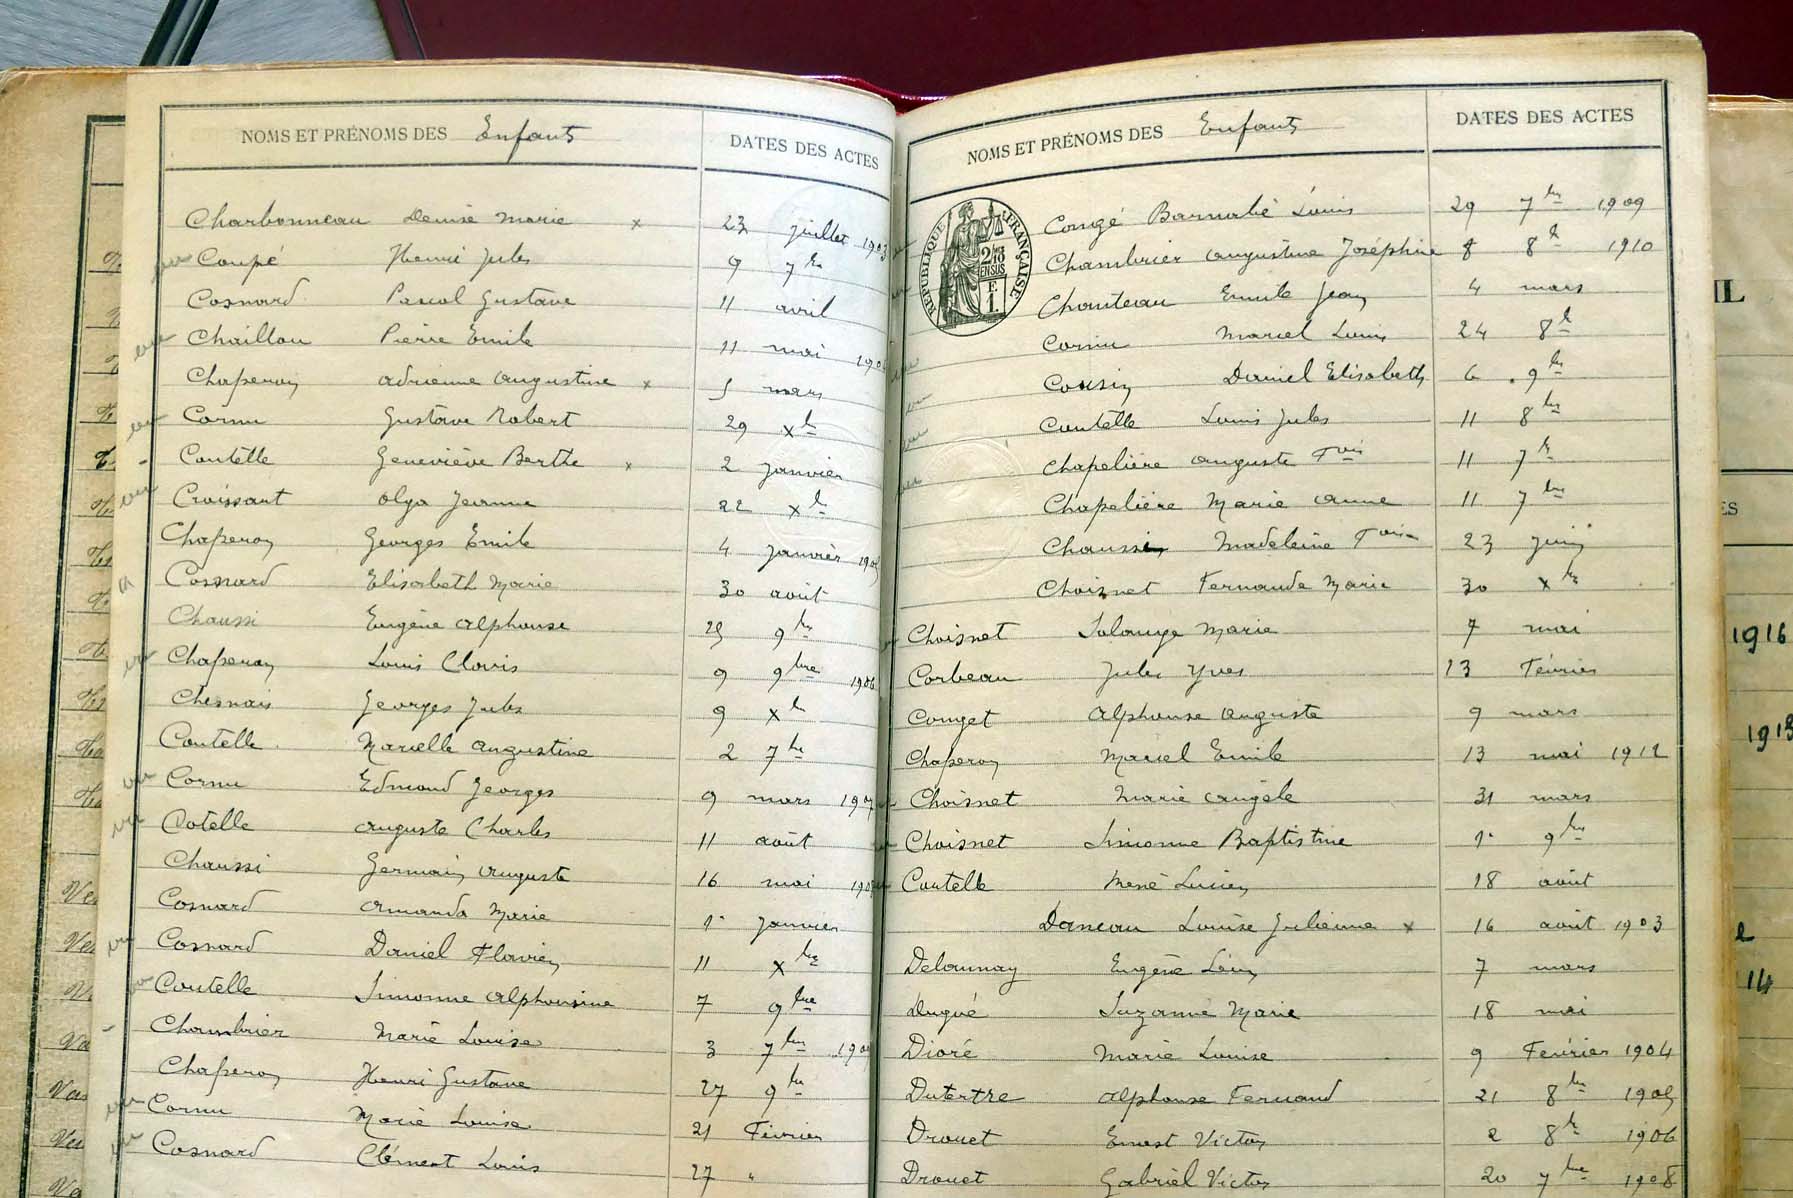 NOMS ET PRÉNOMS DES Enfants DATES DES ACTES
Charbonneau Denise Marie x 23 juillet 1903
vu Coupé Henri Jules 9 7bre
Cosnard Pascal Gustave 11 avril
vu Chaillou Pierre Emile 11 mai
Chaperon Adrienne Augustine x 5 mars
vu Cornu Gustave Robert 29 Xbre
- Coutelle Geneviève Berthe x 2 janvier
vu Croissant Olga Jeanne 22 Xbre
Chaperon Georges Emile 4 janvier
Cosnard Elisabeth Marie 30 août
Chaussi Eugène Alphonse 25 9bre
vu Chaperon Louis Clovis 9 9bre 1906
Chesnais Georges Jules 9 Xbre
Coutelle Marcelle Augustine 2 7bre
vu Cornu Edmond Georges 9 mars 1907
vu Cotelle Auguste Charles 11 août
Chaussi Germain Auguste 16 mai
Cosnard Amanda Marie 1er janvier
vu Cosnard Daniel Flavien 11 Xbre
vu Coutelle Simonne Alphonsine 7 9bre
- Chambrier Marie Louise 3 7bre
Chaperon Henri Gustave 27 9bre
vu Cornu Marie Louise 21 Février
vu Cosnard Clément Louis 27 "
NOMS ET PRÉNOMS DES Enfants DATES DES ACTES
RÉPUBLIQUE FRANÇAISE
2/10 EN SUS
F.
1.
Congé Barnabé Louis 29 7bre 1909
Chambrier Augustine Joséphine 8 8bre 1910
Chanteau Emile Jean 4 mars
Cornu Marcel Louis 24 8bre
Cousin Daniel Elisabeth 6 9bre
Coutelle Louis Jules 11 8bre
Chapelière Auguste Fois 11 7bre
Chapelière Marie Anne 11 7bre
Chaussi Madeleine Foise 23 juin
Choisnet Fernande Marie 30 Xbre
Choisnet Solange Marie 7 mai
Corbeau Jules Yves 13 Février
Couget Alphonse Auguste 9 mars
Chaperon Marcel Emile 13 mai 1912
Choisnet Marie Angèle 31 mars
Choisnet Simonne Baptistine 1er 9bre
Coutelle René Lucien 18 août
Daneau Louise Julienne x 16 août 1903
Delaunay Eugène Léon 7 mars
Dugué Suzanne Marie 18 mai
Dioré Marie Louise 9 Février 1904
Dutertre Alphonse Fernand 21 8bre 1905
Drouet Ernest Victor 2 8bre 1906
Drouet Gabriel Victor 20 7bre 1908
IL
ES
1916
14